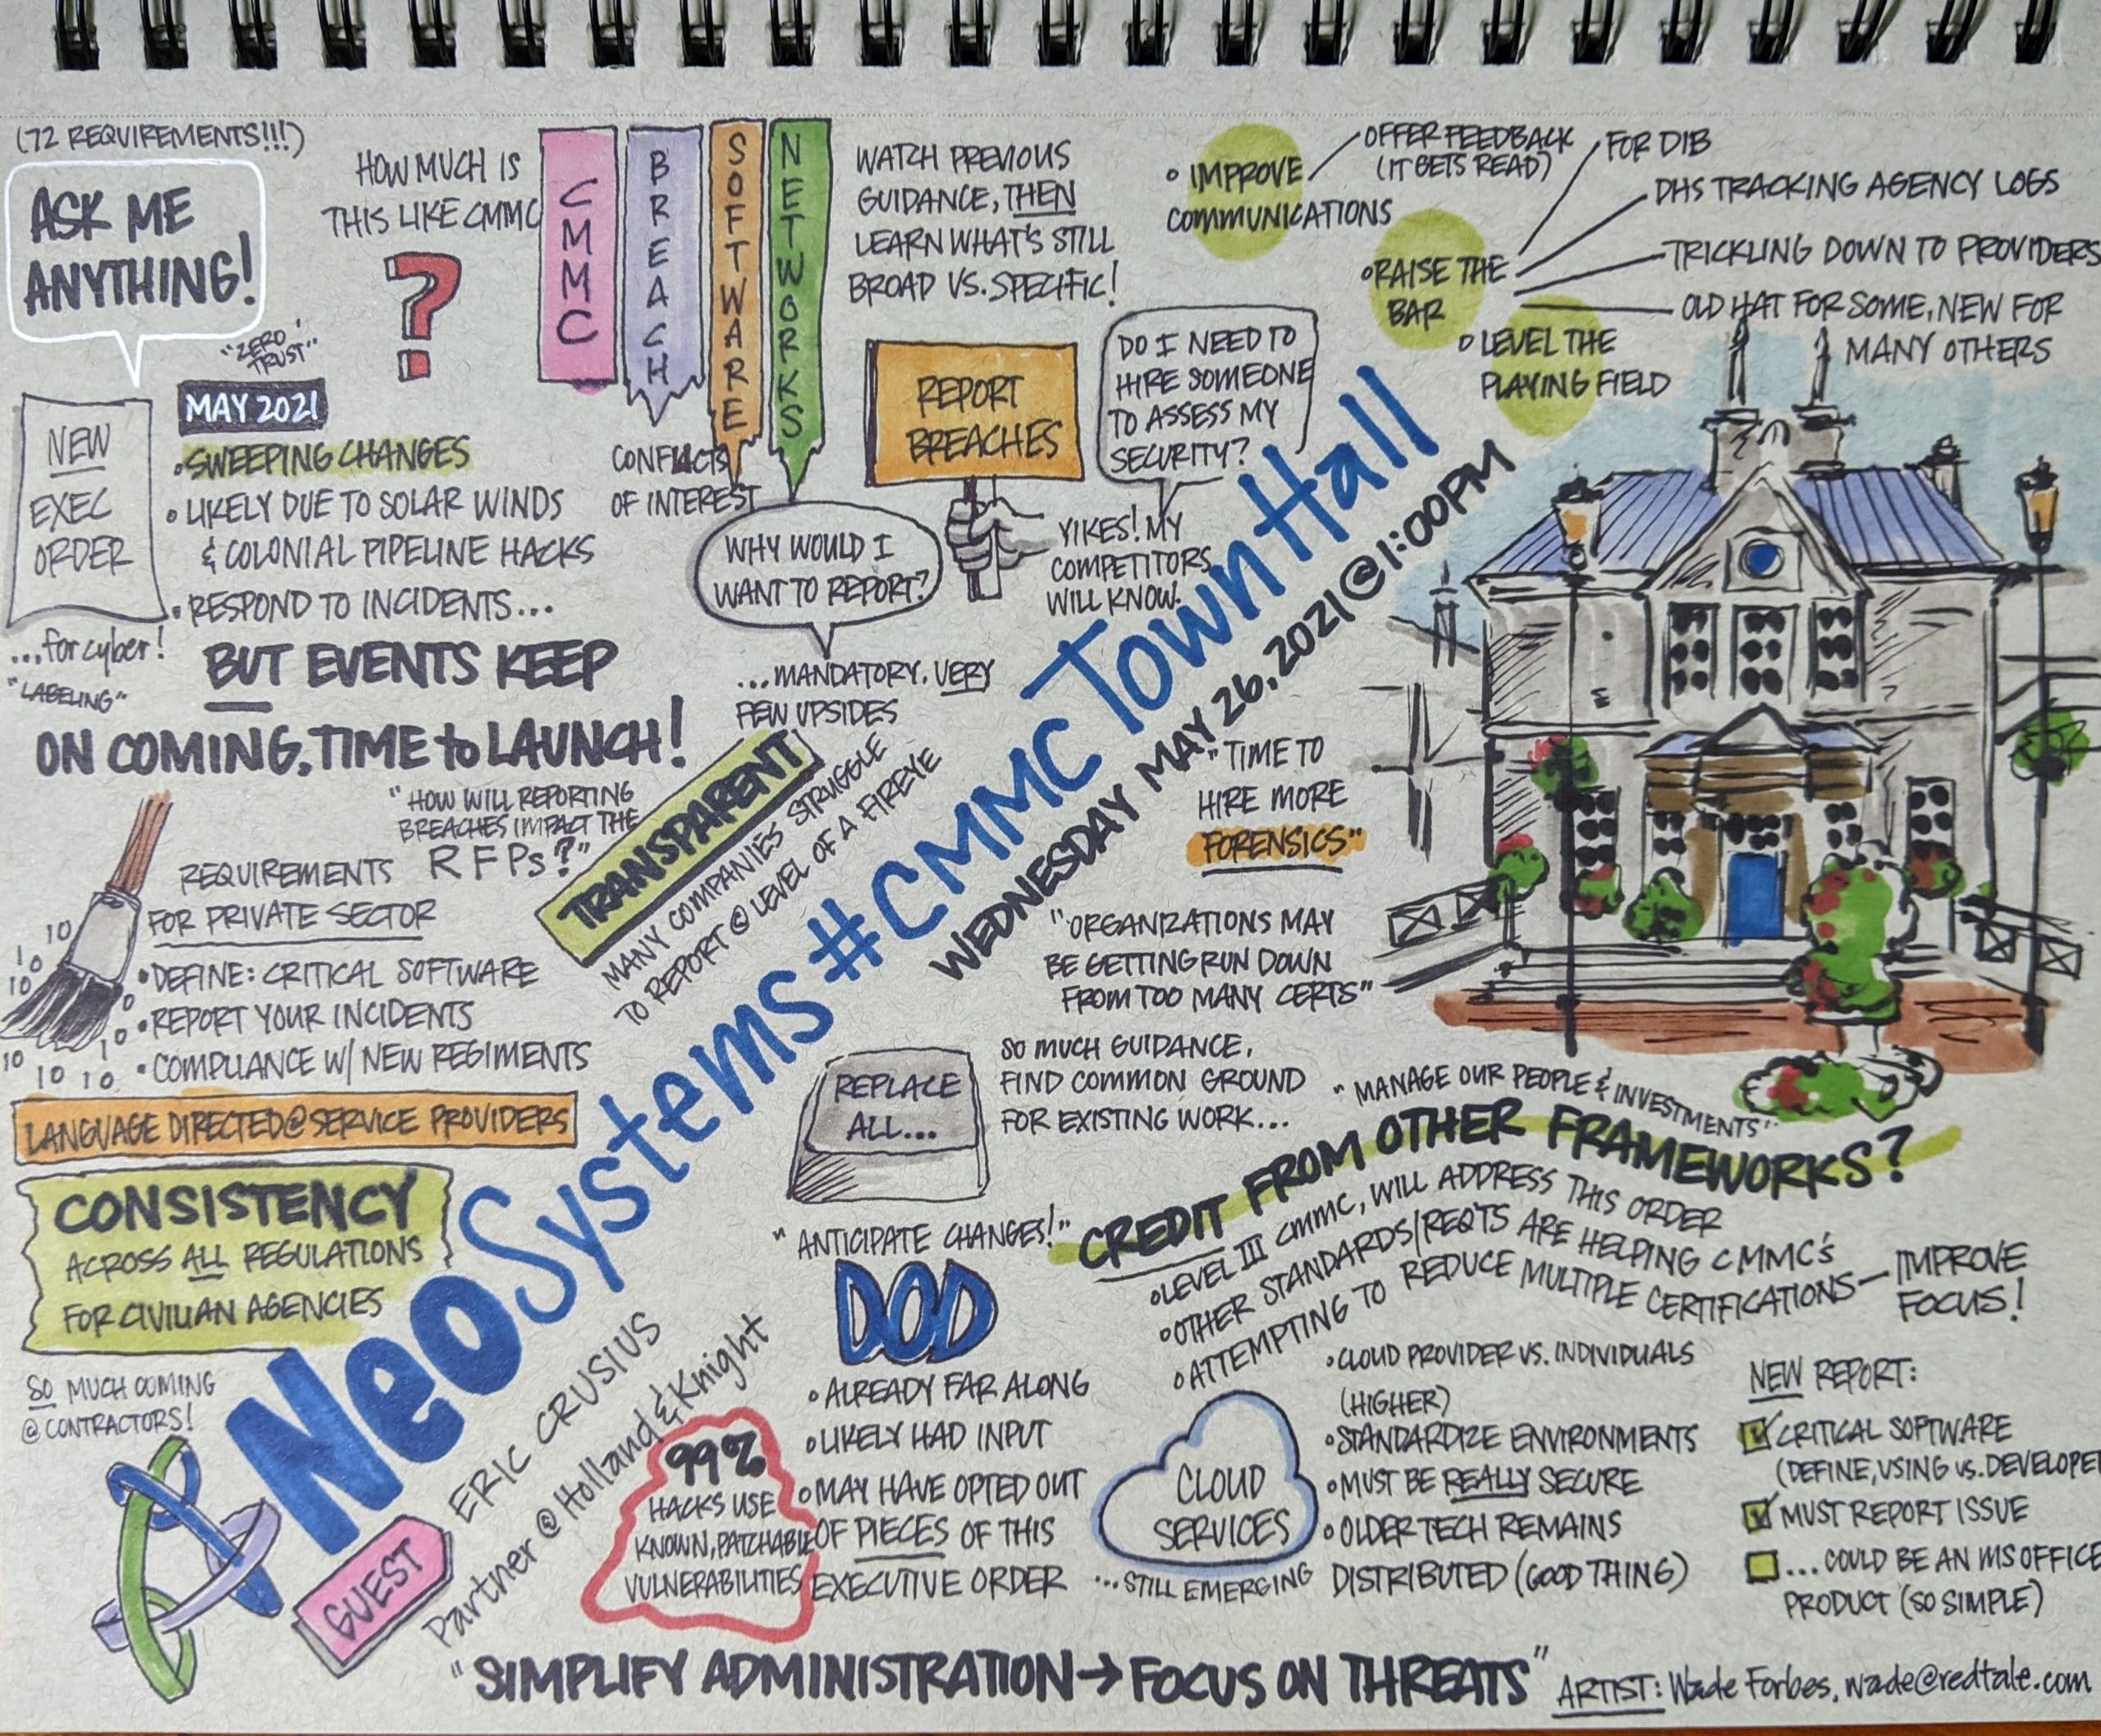 (72 REQUIREMENTS!!!)
ASK ME
ANYTHING!
"ZERO
TRUST"
NEW
EXEC
ORDER
...for cyber!
"LABELING"
MAY 2021
• SWEEPING CHANGES
• LIKELY DUE TO SOLAR WINDS
& COLONIAL PIPELINE HACKS
• RESPOND TO INCIDENTS...
BUT EVENTS KEEP
ON COMING, TIME to LAUNCH!
HOW MUCH IS
THIS LIKE CMMC
?
CMMC
BREACH
SOFTWARE
NETWORKS
CONFLICTS
OF INTEREST
WATCH PREVIOUS
GUIDANCE, THEN
LEARN WHAT'S STILL
BROAD VS. SPECIFIC!
REPORT
BREACHES
WHY WOULD I
WANT TO REPORT?
...MANDATORY. VERY
FEW UPSIDES
DO I NEED TO
HIRE SOMEONE
TO ASSESS MY
SECURITY?
YIKES! MY
COMPETITORS
WILL KNOW.
• IMPROVE
COMMUNICATIONS
OFFER FEEDBACK
(IT GETS READ)
• RAISE THE
BAR
FOR DIB
DHS TRACKING AGENCY LOGS
TRICKLING DOWN TO PROVIDERS
OLD HAT FOR SOME, NEW FOR
MANY OTHERS
• LEVEL THE
PLAYING FIELD
"HOW WILL REPORTING
BREACHES IMPACT THE
RFPs?"
TRANSPARENT
MANY COMPANIES STRUGGLE
TO REPORT @ LEVEL OF A FIREYE
REQUIREMENTS
FOR PRIVATE SECTOR
• DEFINE: CRITICAL SOFTWARE
• REPORT YOUR INCIDENTS
• COMPLIANCE W/ NEW REGIMENTS
10
10
10
0
0
10
10
10
10
LANGUAGE DIRECTED @ SERVICE PROVIDERS
CONSISTENCY
ACROSS ALL REGULATIONS
FOR CIVILIAN AGENCIES
SO MUCH COMING
@ CONTRACTORS!
NeoSystems #CMMC Town Hall
WEDNESDAY MAY 26, 2021 @ 1:00PM
GUEST
ERIC CRUSIUS
Partner @ Holland & Knight
"TIME TO
HIRE MORE
FORENSICS"
"ORGANIZATIONS MAY
BE GETTING RUN DOWN
FROM TOO MANY CERTS"
REPLACE
ALL...
SO MUCH GUIDANCE,
FIND COMMON GROUND
FOR EXISTING WORK...
"ANTICIPATE CHANGES!"
"MANAGE OUR PEOPLE & INVESTMENTS"
CREDIT FROM OTHER FRAMEWORKS?
• LEVEL III CMMC, WILL ADDRESS THIS ORDER
• OTHER STANDARDS/REQTS ARE HELPING CMMC'S
• ATTEMPTING TO REDUCE MULTIPLE CERTIFICATIONS — IMPROVE
FOCUS!
DOD
• ALREADY FAR ALONG
• LIKELY HAD INPUT
• MAY HAVE OPTED OUT
OF PIECES OF THIS
EXECUTIVE ORDER
99%
HACKS USE
KNOWN, PATCHABLE
VULNERABILITIES
CLOUD
SERVICES
...STILL EMERGING
• CLOUD PROVIDER VS. INDIVIDUALS
(HIGHER)
• STANDARDIZE ENVIRONMENTS
• MUST BE REALLY SECURE
• OLDER TECH REMAINS
DISTRIBUTED (GOOD THING)
NEW REPORT:
CRITICAL SOFTWARE
(DEFINE, USING VS. DEVELOPE
MUST REPORT ISSUE
...COULD BE AN MS OFFICE
PRODUCT (SO SIMPLE)
"SIMPLIFY ADMINISTRATION → FOCUS ON THREATS"
ARTIST: Wade Forbes, wade@redtale.com